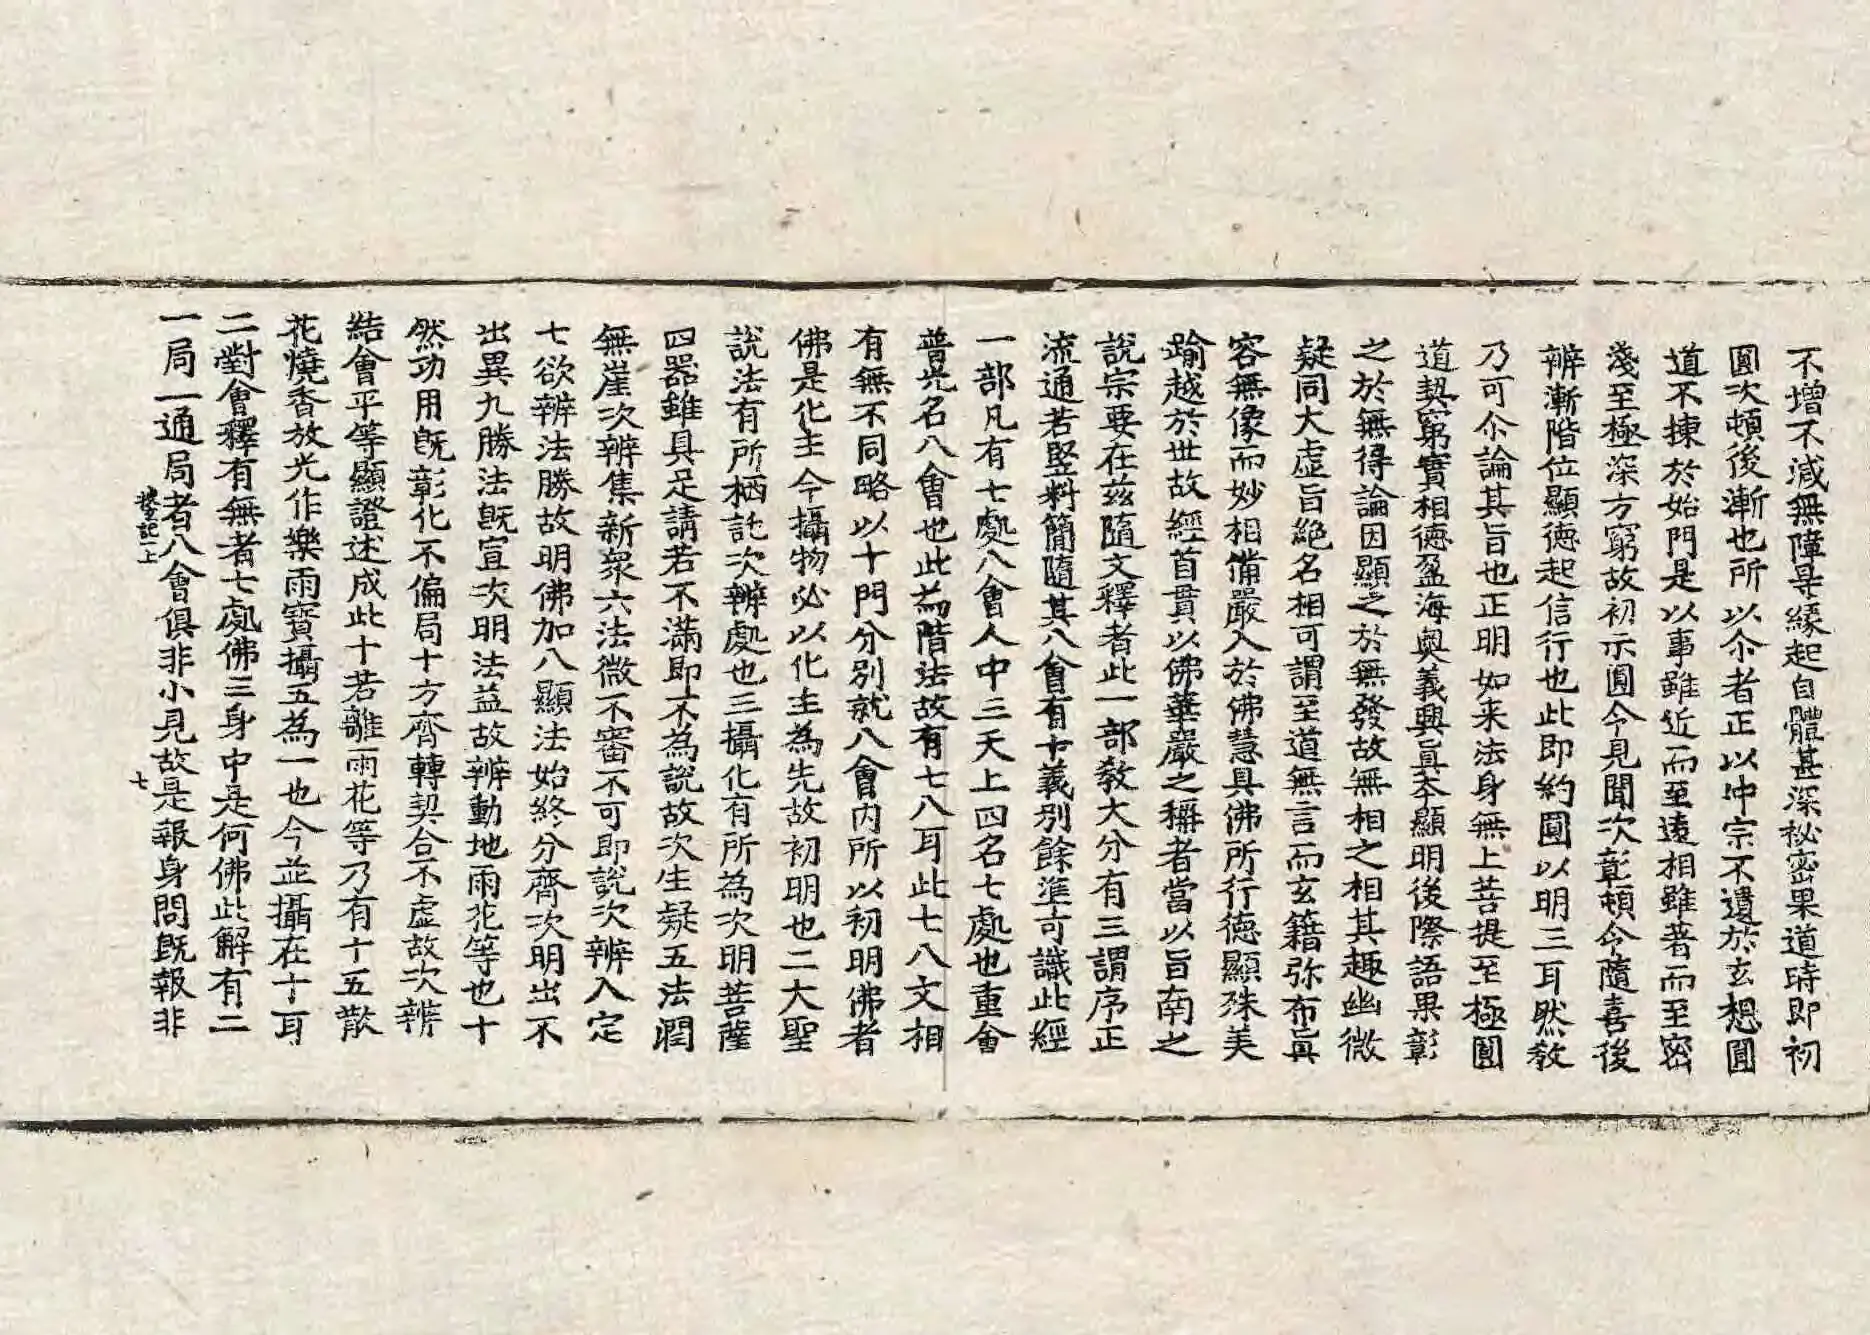 不增不減無障导緣起自體甚深秘密果道時即初
圓次頓後漸也所以尒者正以沖宗不遺於玄想圓
道不揀於始門是以事雖近而至遠相雖著而至密
淺至極深方窮故初示圓令見聞次彰頓令隨喜後
辨漸階位顯德起信行也此即約圓以明三耳然教
乃可尒論其旨也正明如来法身無上菩提至極圓
道契窮實相德盈海奧義興真夲顯明後際語果彰
之於無得論因顯之於無發故無相之相其趣幽微
疑同大虛旨絕名相可謂至道無言而玄籍弥布真
容無像而妙相備嚴入於佛慧具佛所行德顯殊美
踰越於世故經首貫以佛華嚴之稱者當以旨南之
說宗要在茲隨文釋者此一部教大分有三謂序正
流通若竪料簡隨其八會有十義別餘准可識此經
一部凡有七處八會人中三天上四名七處也重會
普光名八會也此為階法故有七八耳此七八文相
有無不同略以十門分別就八會內所以初明佛者
佛是化主今攝物必以化主為先故初明也二大聖
說法有所栖託次辨處也三攝化有所為次明菩薩
四器雖具足請若不滿即不為說故次生疑五法潤
無崖次辨集新眾六法微不審不可即說次辨入定
七欲辨法勝故明佛加八顯法始終分齊次明出不
出異九勝法既宣次明法益故辨動地雨花等也十
然功用既彰化不偏局十方齊轉契合不虛故次辨
結會平等顯證述成此十若離雨花等乃有十五散
花燒香放光作樂雨寶攝五為一也今並攝在十耳
二對會釋有無者七處佛三身中是何佛此解有二
一局一通局者八會俱非小見故是報身問既報非
搜玄記一上
七